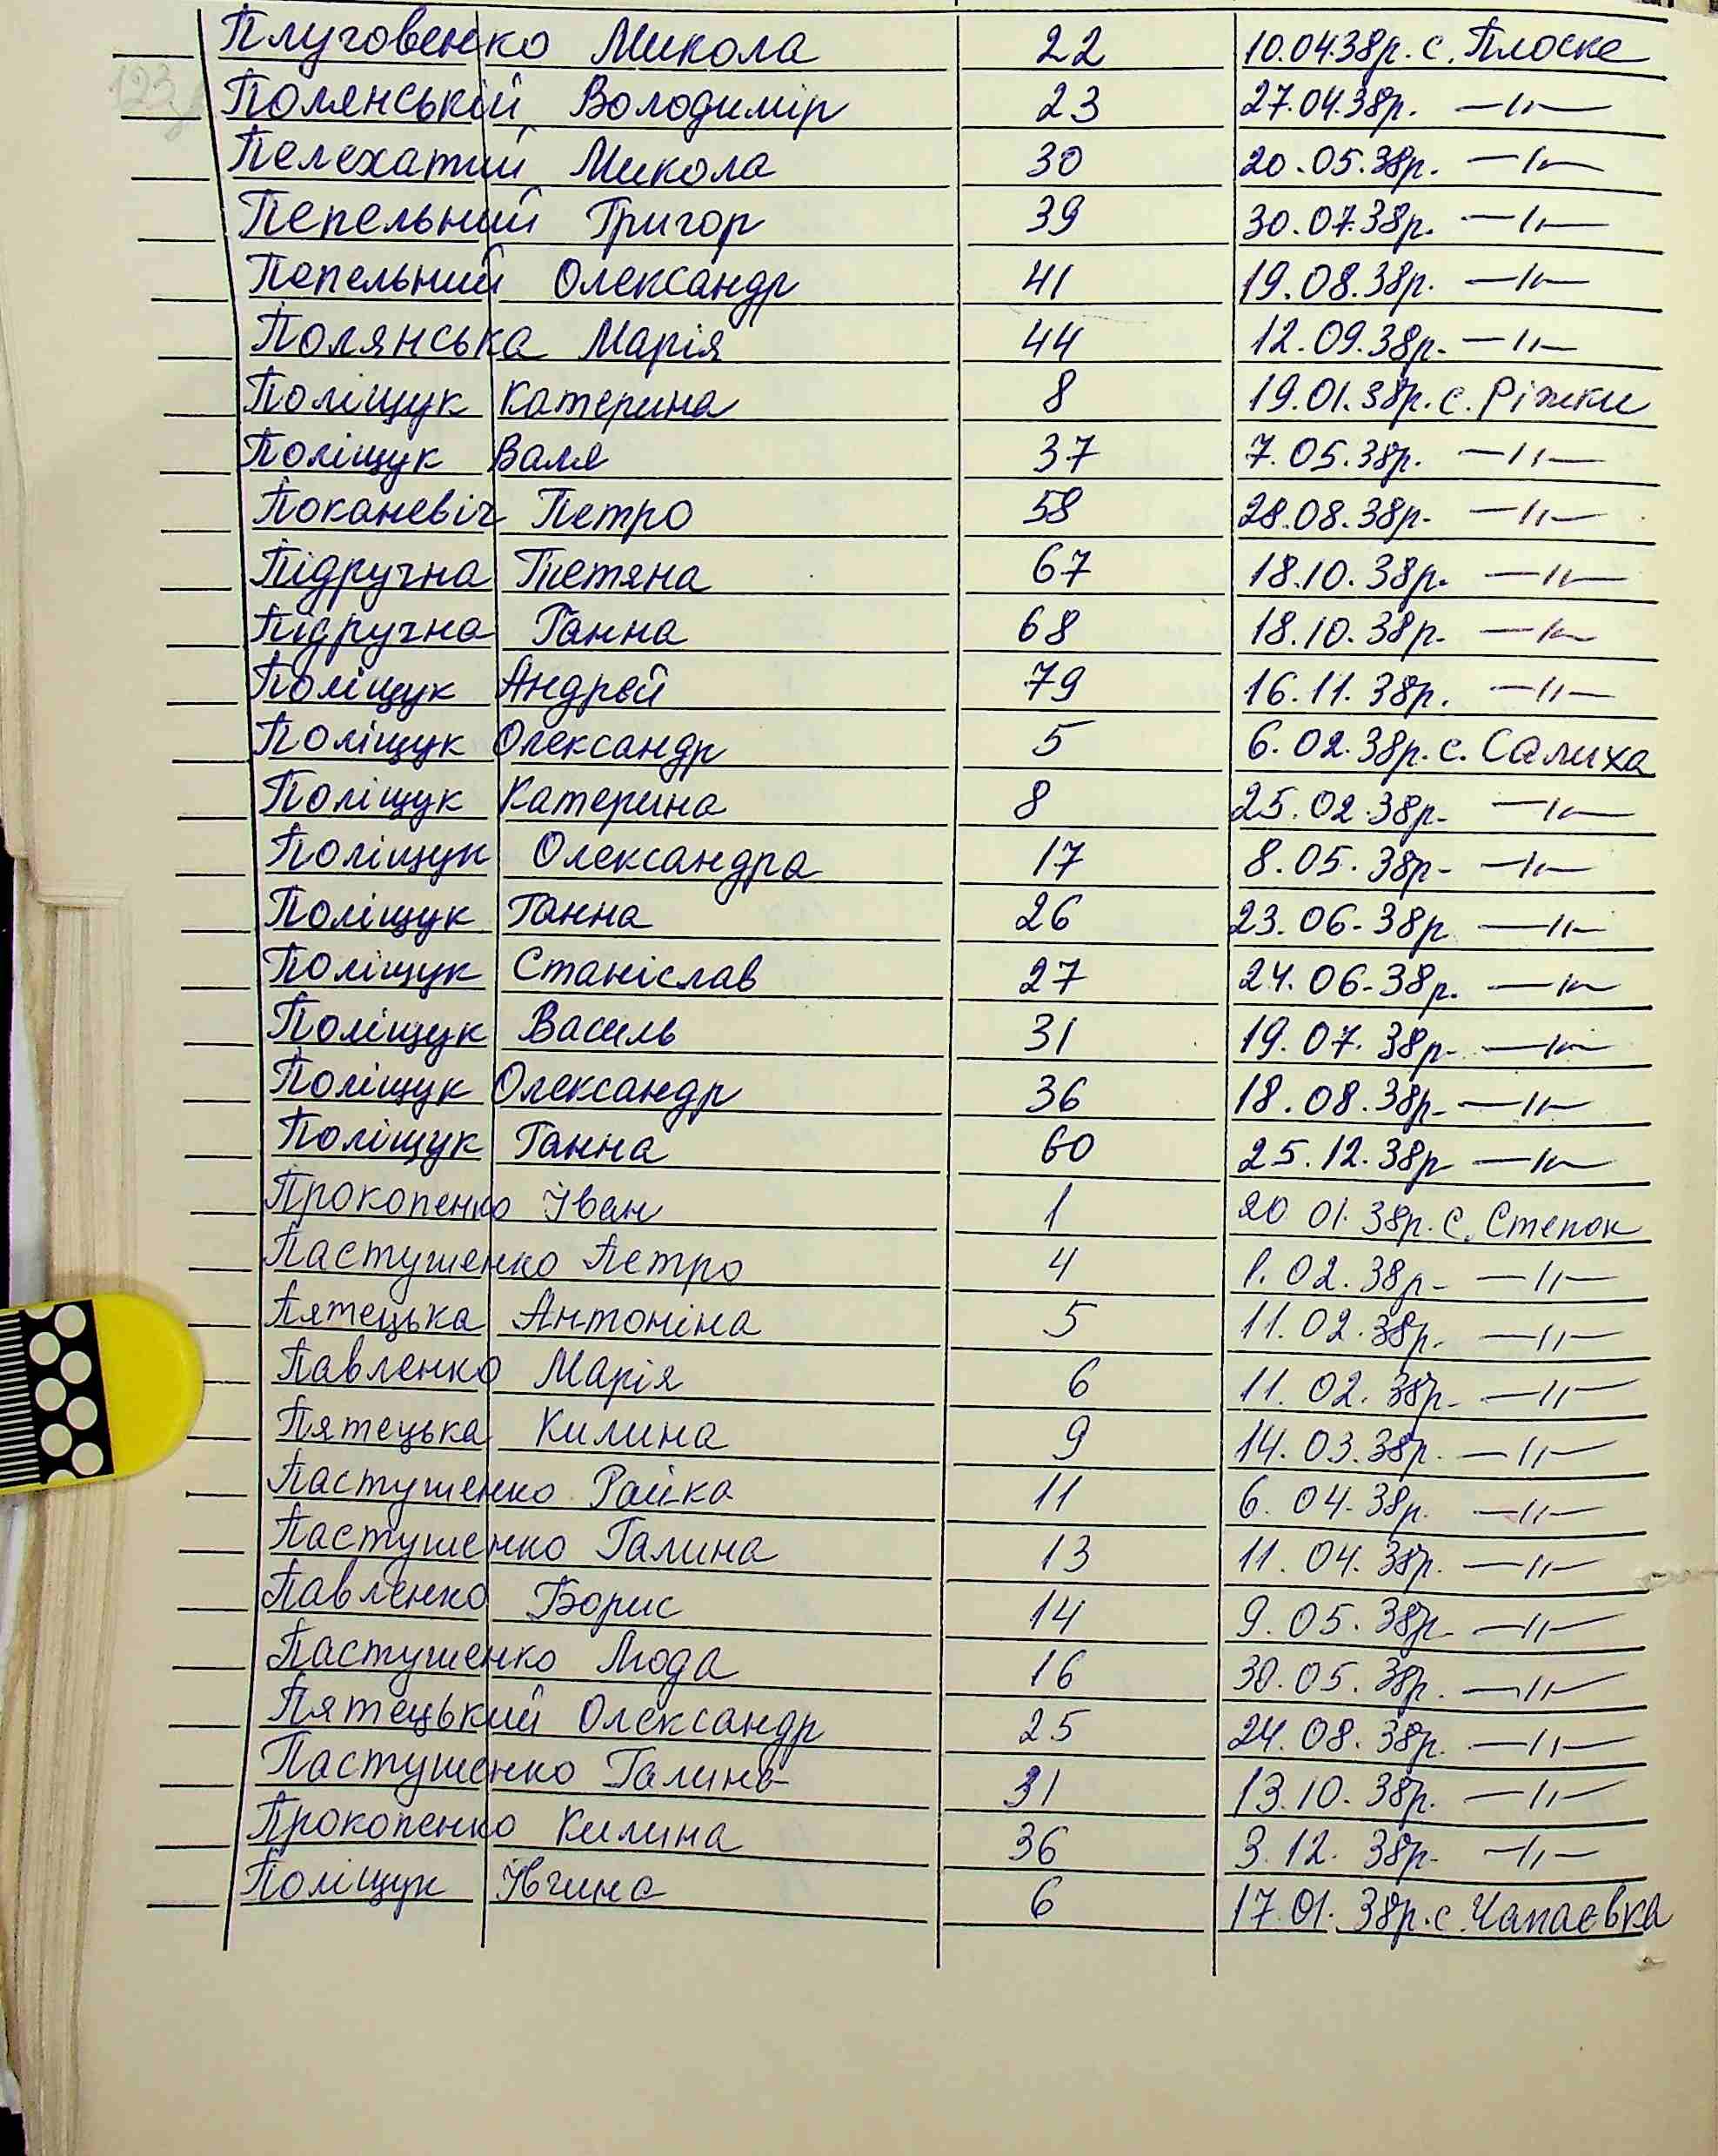 Плуговенко Микола 22 10.04.38р. с. Плоске
123
Полянській Володимір 23 27.04.38р. —11—
Пелехатий Микола 30 20.05.38р. —11—
Пепельний Григор 39 30.07.38р. —11—
Пепельний Олександр 41 19.08.38р. —11—
Полянська Марія 44 12.09.38р. —11—
Поліщук Катерина 8 19.01.38р. с. Ріжки
Поліщук Валя 37 7.05.38р. —11—
Поканевіч Петро 58 28.08.38р. —11—
Підручна Тетяна 67 18.10.38р. —11—
Підручна Ганна 68 18.10.38р. —11—
Поліщук Андрей 79 16.11.38р. —11—
Поліщук Олександр 5 6.02.38р. с. Салиха
Поліщук Катерина 8 25.02.38р. —11—
Поліщук Олександра 17 8.05.38р. —11—
Поліщук Ганна 26 23.06.38р —11—
Поліщук Станіслав 27 24.06.38р. —11—
Поліщук Василь 31 19.07.38р. —11—
Поліщук Олександр 36 18.08.38р. —11—
Поліщук Ганна 60 25.12.38р —11—
Прокопенко Іван 1 20 01.38р. с. Степок
Пастушенко Петро 4 1.02.38р. —11—
Пятецька Антоніна 5 11.02.38р. —11—
Павленко Марія 6 11.02.38р. —11—
Пятецька Килина 9 14.03.38р. —11—
Пастушенко Райка 11 6.04.38р. —11—
Пастушенко Галина 13 11.04.38р. —11—
Павленко Борис 14 9.05.38р. —11—
Пастушенко Люда 16 30.05.38р. —11—
Пятецький Олександр 25 24.08.38р. —11—
Пастушенко Галина 31 13.10.38р. —11—
Прокопенко Килина 36 3.12.38р. —11—
Поліщук Ївгина 6 17.01.38р. с. Чапаєвка